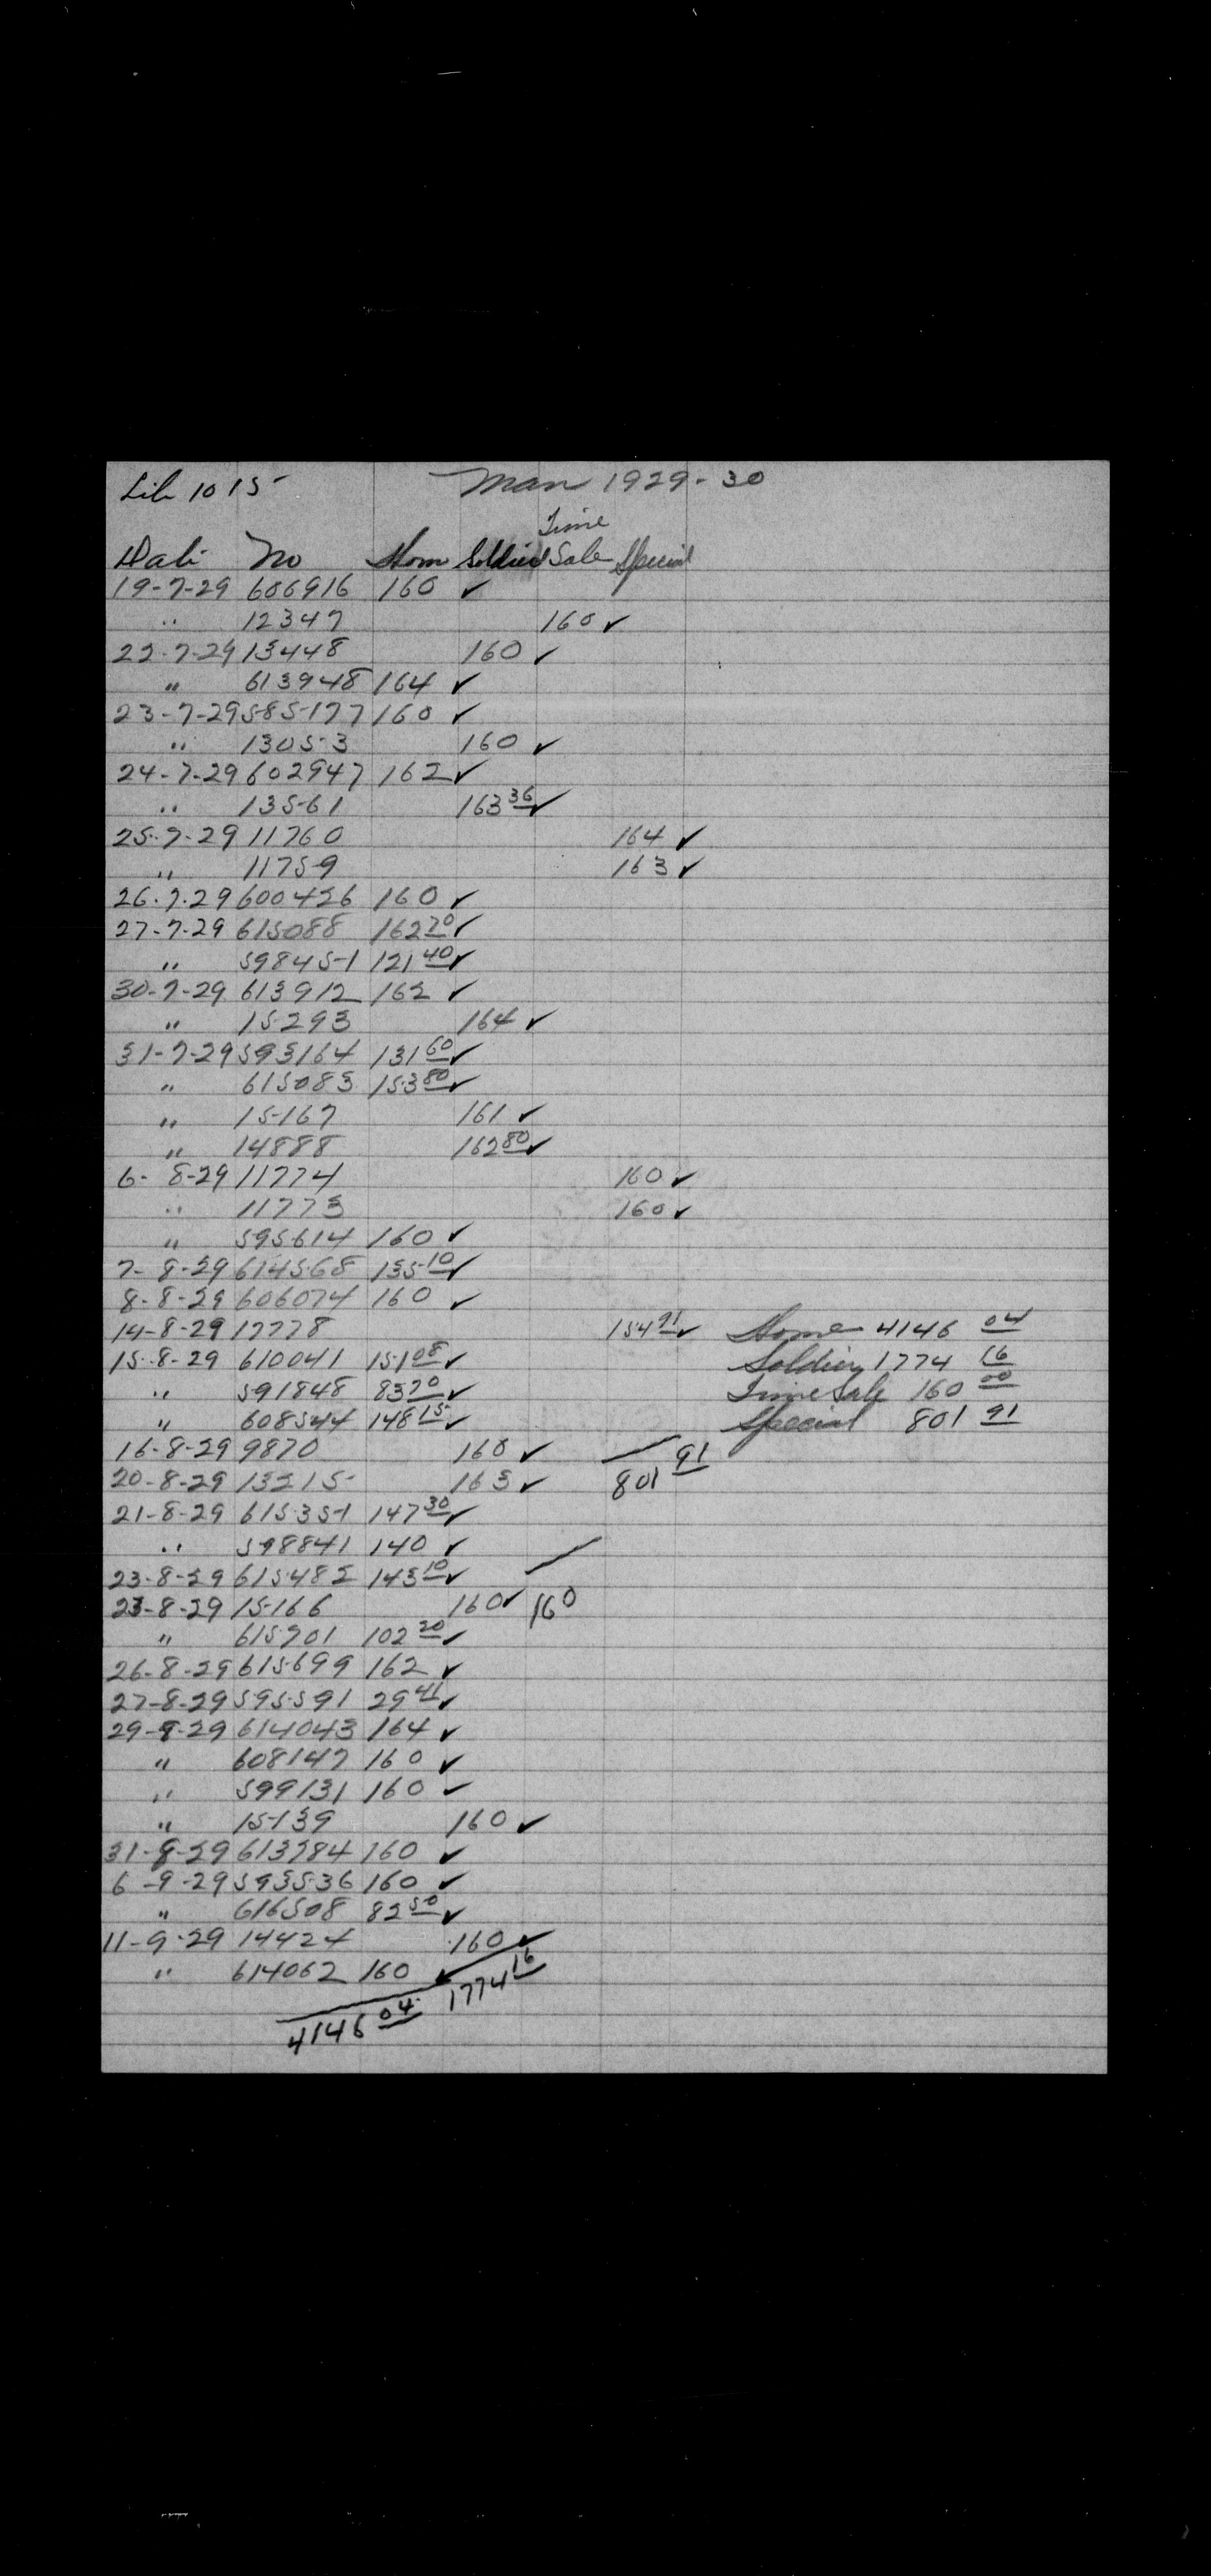 Lib 1015
Man 1929-30
Time
Date No Hom Soldier Sale Special
19-7-29 606916 160 ✓
" 12347 160 ✓
22-7-29 13448 160 ✓
" 613948 164 ✓
23-7-29 585177 160 ✓
" 13053 160 ✓
24-7-29 602947 162 ✓
" 13561 163 36 ✓
25-7-29 11760 164 ✓
" 11759 163 ✓
26-7-29 600426 160 ✓
27-7-29 615088 162 70 ✓
" 598451 121 40 ✓
30-7-29 613912 162 ✓
" 15293 164 ✓
31-7-29 593164 131 60 ✓
" 615083 153 80 ✓
" 15167 161 ✓
" 14888 162 80 ✓
6-8-29 11774 160 ✓
" 11773 160 ✓
" 595614 160 ✓
7-8-29 614568 135 10 ✓
8-8-29 606074 160 ✓
14-8-29 17778 154 91 ✓ Home 4146 04
15-8-29 610041 151 08 ✓ Soldier 1774 16
" 591848 83 70 ✓ Time Sale 160 00
" 608544 148 15 ✓ Special 801 91
16-8-29 9870 160 ✓
20-8-29 13215 163 ✓ 801 91
21-8-29 615351 147 30 ✓
" 598841 140 ✓
23-8-29 615482 143 10 ✓
23-8-29 15166 160 ✓ 160
" 615701 102 20 ✓
26-8-29 615699 162 ✓
27-8-29 595591 29 41 ✓
29-8-29 614043 164 ✓
" 608147 160 ✓
" 599131 160 ✓
" 15139 160 ✓
31-8-29 613784 160 ✓
6-9-29 593536 160 ✓
" 616508 82 50 ✓
11-9-29 14424 160 ✓
" 614062 160 ✓ 1774 16
4146 04